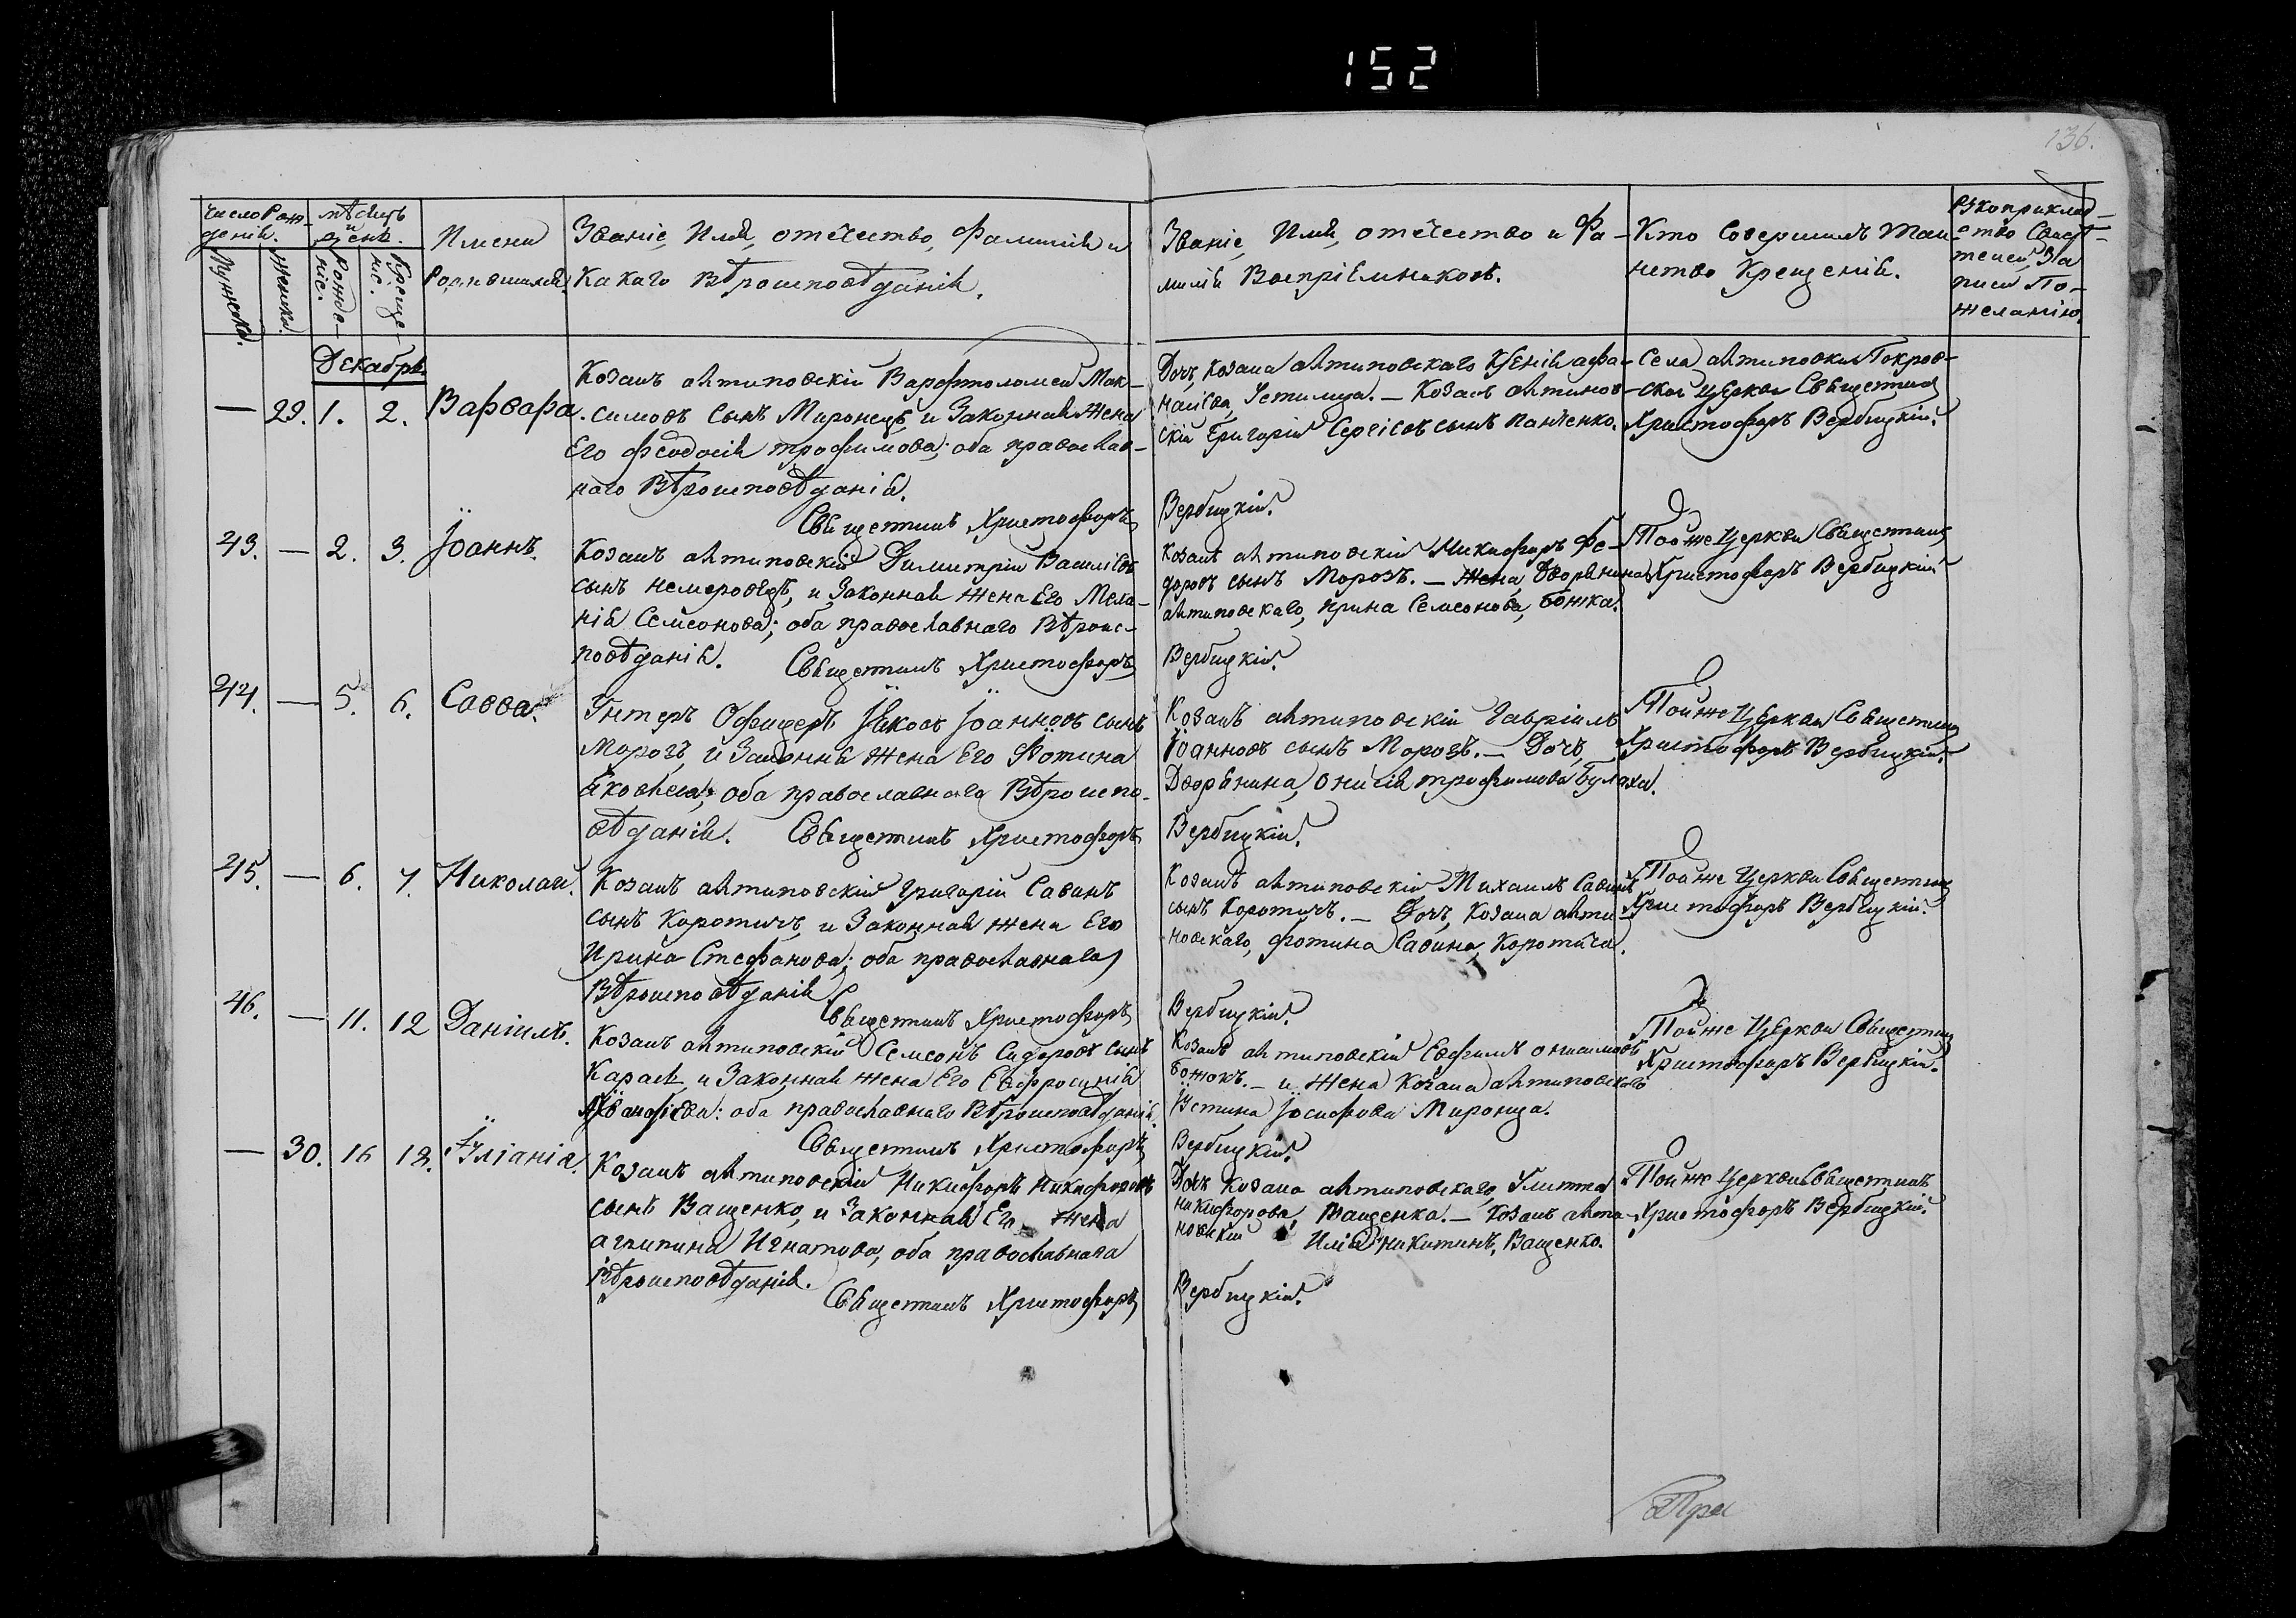 152
136.
Число Рож-
денія.
Мужска.
Женска.
Мѣсяцъ
и
День.
Рожде-
ніе.
Креще-
ніе.
Имена
Родившихся.
Званіе, Имя, отечество, Фамилія и
Какаго Вѣроисповѣданія.
Званіе, Имя, отечество и Фа-
милія Воспріѣмниковъ.
Кто Совершилъ Таи-
нство Крещенія.
Рукоприклад-
ство Свидѣ-
телей За
писи По-
желанію.
Декабрь
— 29. 1. 2. Варвара.
Козакъ антиповскій Варфтоломей Мак-
симовъ Сынъ Миронецъ, и Законная Жена
Его Феодосія трофимова; оба православ-
наго Вѣроисповѣданія.
Священникъ Христофоръ
Дочь Козака антиповскаго Ксенія афа-
насіева, Устимца. — Козакъ антипов-
скій Григорій Сергіевъ сынъ Панченко.
Вербицкій.
Села антиповки Покров-
ской Церкви Священник
Христофоръ Вербицкій.
43. — 2. 3. Іоаннъ.
Козакъ антиповскій Димитрій Василіевъ
сынъ немеровецъ, и Законная жена Его Мела-
нія Семеонова; оба православнаго Вѣроис-
повѣданія. Священникъ Христофоръ
Козакъ антиповскій Никифоръ Фе-
доровъ сынъ Морозъ. — Жена Дворянина
антиповскаго, Ирина Семеонова, Божка.
Вербицкій.
Тойже Церкви Священник
Христофоръ Вербицкій
44. — 5. 6. Савва.
Унтеръ Офицеръ Іаковъ Іоанновъ сынъ
Морозъ, и Законная жена Его Фотина
Яковлева; оба православнаго Вѣроиспо-
вѣданія. Священникъ Христофоръ
Козакъ антиповскій Гавріилъ
Іоанновъ сынъ Морозъ. — Дочь
Дворянина, Онисія трофимова Булаха.
Вербицкій.
Тойже Церкви Священник
Христофоръ Вербицкій.
45. — 6. 7. Николай.
Козакъ антиповскій Григорій Савинъ
сынъ Коротичъ, и Законная жена Его
Ирина Стефанова; оба православнаго
Вѣроисповѣданія
Священникъ Христофоръ
Козакъ антиповскій Михаилъ Савинъ
сынъ Коротичъ. — Дочь Козака анти-
повскаго, фотина Савина, Коротича.
Вербицкій.
Тойже Церкви Священник
Христофоръ Вербицкій.
46. — 11. 12 Даніилъ.
Козакъ антиповскій Семеонъ Сидоровъ сынъ
Карась, и Законная жена Его Евфросинія
оба православнаго Вѣроисповѣданія.
Священникъ Христофоръ
Козакъ антиповскій Евфимъ онисимовъ
Божокъ. — и Жена Козака антиповскаго
Іустина Іосифова Миронца.
Вербицкій.
Тойже Церкви Священник
Христофоръ Вербицкій.
— 30. 16 18. Іуліанія.
Козакъ антиповскій Никифоръ Никифоровъ
сынъ Ващенко, и Законная Его Жена
агрипина Игнатова, оба православнаго
Вѣроисповѣданія.
Священникъ Христофоръ
Дочь Козака антиповскаго, Улитта
никифорова, Ващенка. — Козакъ анти-
повскій Илія никитинъ, Ващенко.
Вербицкій.
Тойже Церкви Священникъ
Христофоръ Вербицкій.
При